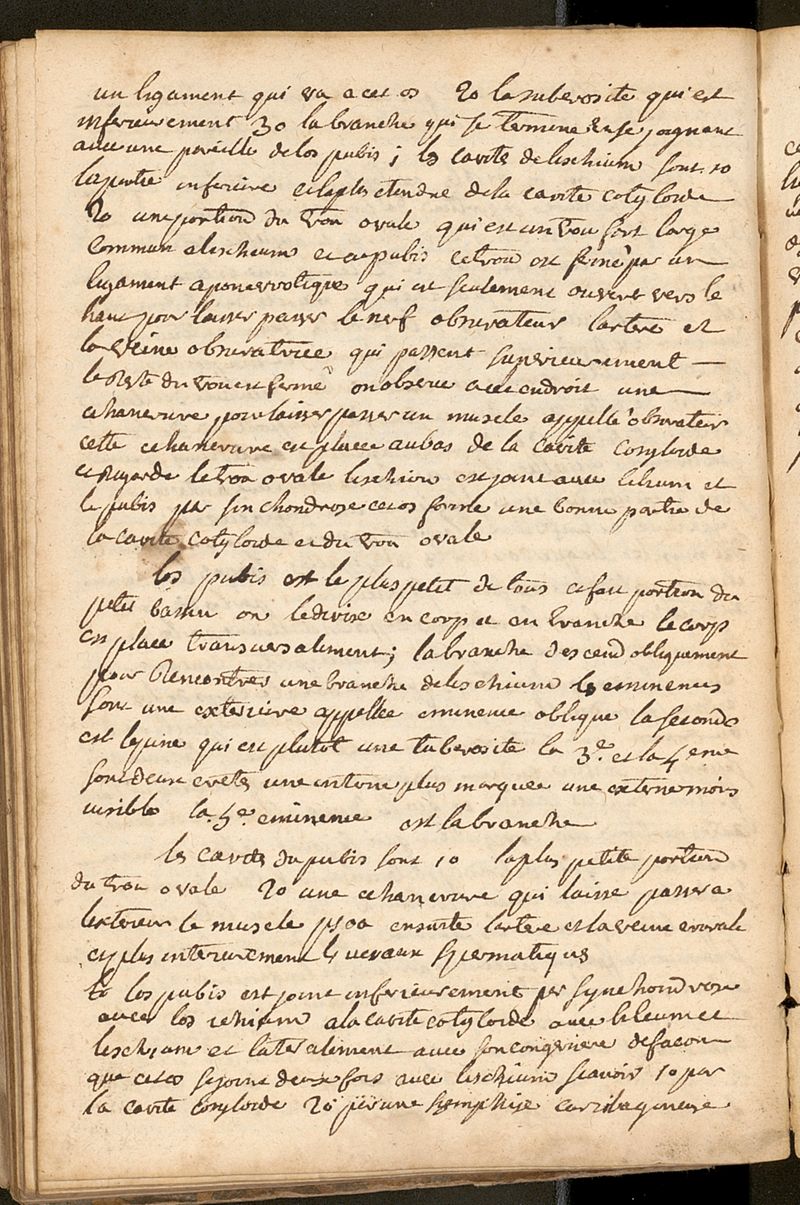 un ligament qui va a cet os 2o la tuberosite qui est
inferieurement 3o la branche qui se termine en se joignant
avec une pareille de los pubis; les cavites de leschium sont 1o
la partie inferieure et la plus etendue de la cavite cotyloide
2o une portion du trou ovale qui est un trou fort large
commun a leschium et au pubis ce trou est fermé par un
ligament aponevrotique qui est seulement ouvert vers le
haut pour laisser passer le nerf obturateur lartere et
la veine obturatrice qui passent superieurement —
le reste du trou est fermé on observe a cet endroit une —
echancrure pour laisser passer un muscle appellé obturateur
cette echancrure est placee au bas de la cavite cotyloide
et regarde le trou ovale leschium est joint avec lileum et
le pubis par sinchondrose cet os forme une bonne partie de
la cavite cotyloide et du trou ovale
los pubis est le plus petit de tous et fait portion du
petit bassin on le divise en corp et en branche le corp
est place transversalement; la branche descend obliquement
pour rencontrer une branche de leschium les eminences
sont une exterieure appellee eminence oblique la seconde
est lepine qui est plutot une tuberosite la 3.e et la 4eme
sont deux cretes une interne plus marquee une externe moins
visible la 5.e eminence est la branche
les cavites du pubis sont 1o la plus petite portion
du trou ovale 2o une echancrure qui laisse passer a
lexterieur le muscle psoa ensuite lartere et la veine crurale
et plus interieurement les vesaux spermatiques
los pubis est joint inferieurement par synchondrose
avec los ischium a la cavite cotyloide avec lileum et
leschium et lateralement avec son congenere de facon
que cet os se joint deux fois avec leschium scavoir 1o par
la cavite cotyloide 2o par une symphise cartilagineuse